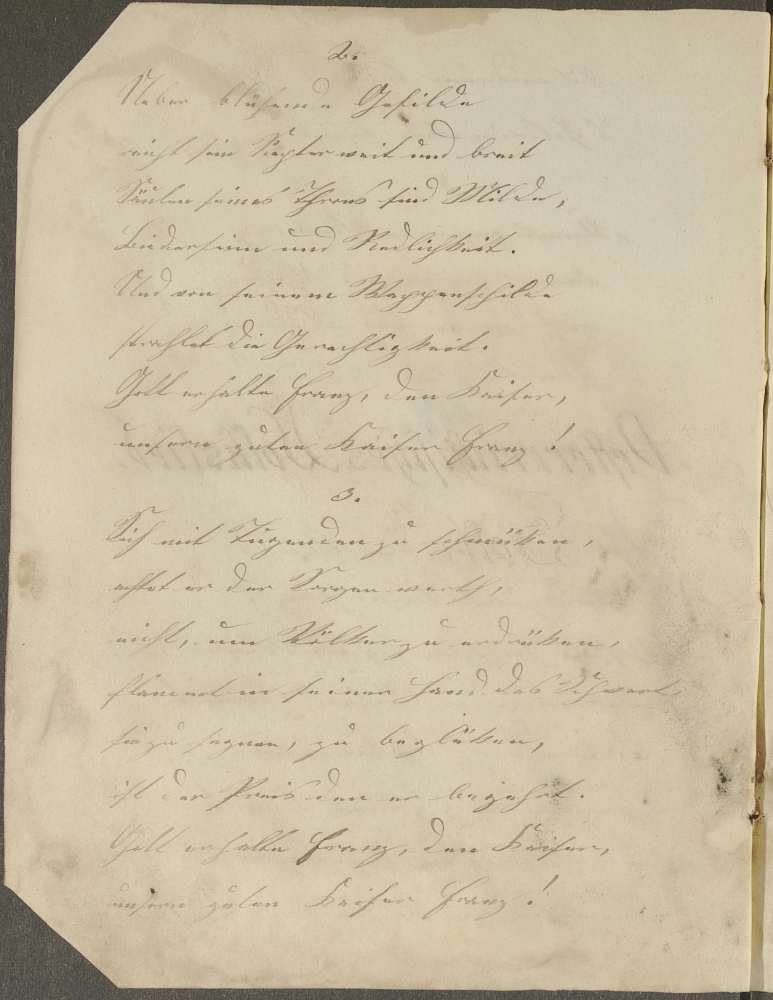 2.
Ueber blühende Gefilde
reicht sein Szepter weit und breit
Säulen seines Throns sind Milde,
Biedersinn und Redlichkeit.
Und von seinem Wappenschilde
strahlet die Gerechtigkeit.
Gott erhalte Franz, den Kaiser,
unsern guten Kaiser Franz!
3.
Sich mit Tugenden zu schmüken,
achtet er der Sorgen werth,
nicht, um Völker zu erdrüken,
flammet in seiner Hand das Schwert,
sie zu segnen, zu beglüken,
ist der Preis den er begehrt.
Gott erhalte Franz, den Kaiser,
unsern guten Kaiser Franz!